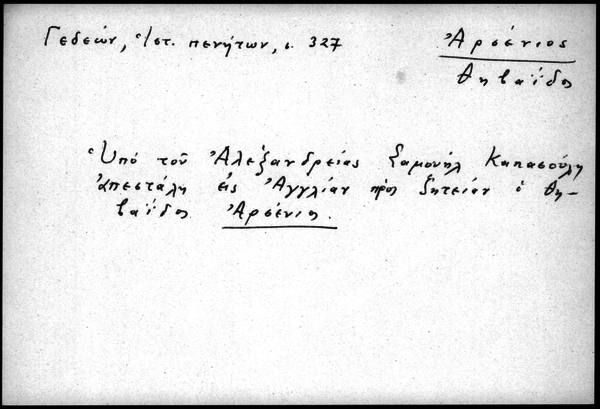 Γεδεών, Ἱστ. πενήτων, σ. 327
Ἀρσένιος
Θηβαΐδος
Ὑπό τοῦ Ἀλεξανδρείας Σαμουήλ Καπασούλη
ἀπεστάλη εἰς Ἀγγλίαν πρός ζητείαν ὁ Θη-
βαΐδος Ἀρσένιος.